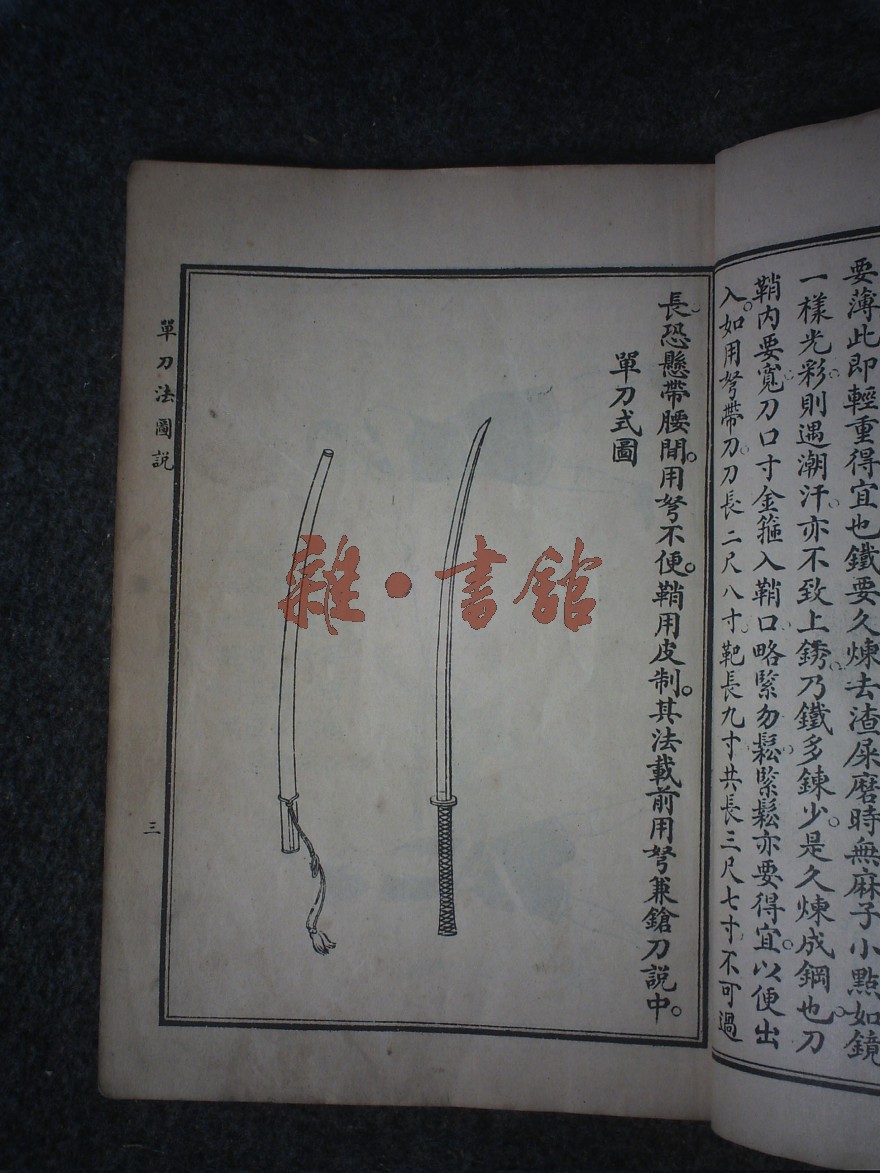 要薄此即輕重得宜也鐵要久煉去渣屎磨時無麻子小點如鏡
一樣光彩則遇潮汗亦不致上銹乃鐵多鍊少。是久煉成鋼也。刀
鞘內要寬刀口寸金箍入鞘口略緊勿鬆緊鬆亦要得宜。以便出
入。如用弩帶刀。刀長二尺八寸。靶長九寸共長三尺七寸不可過
長。恐懸帶腰間。用弩不便。鞘用皮制。其法載前用弩兼鎗刀說中。
單刀式圖
單刀法圖說
三
雜·書館